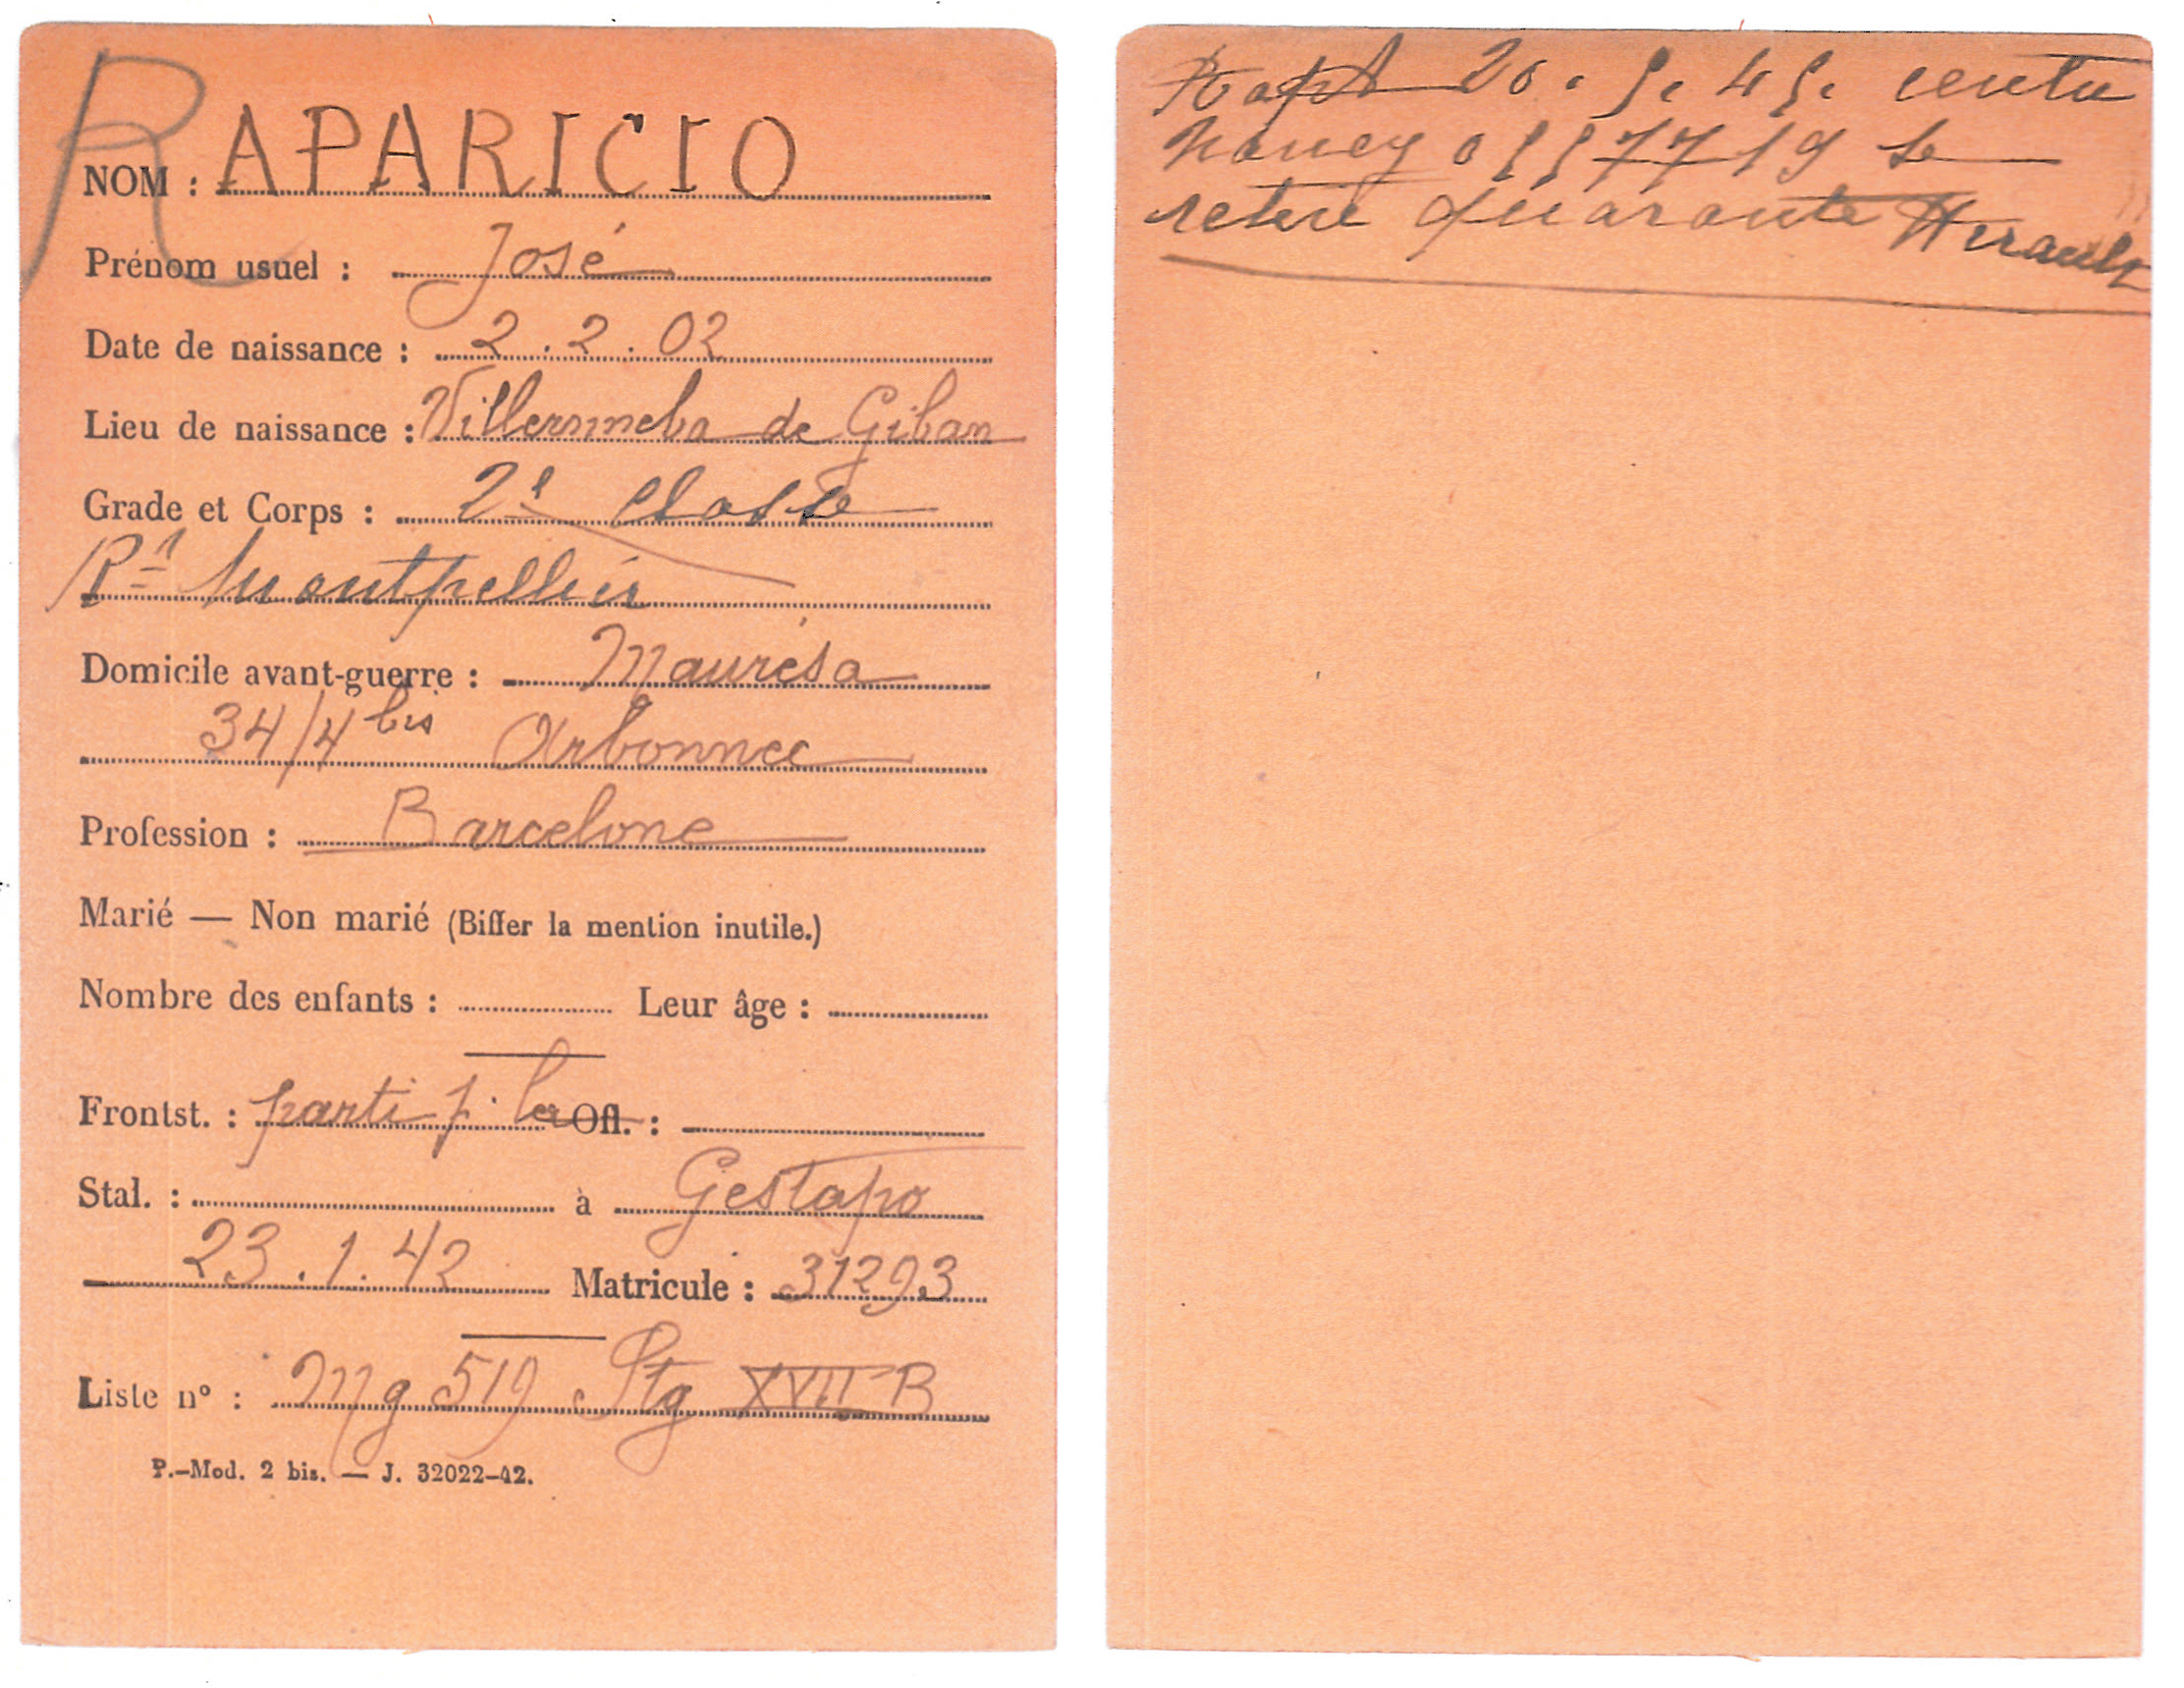 R
NOM : APARICIO
Prénom usuel : José
Date de naissance : 2.2.02
Lieu de naissance : Villermela de Giban
Grade et Corps : 2e classe
Rt Montpellier
Domicile avant-guerre : Maurésa
34/4 bis Arbonnee
Profession : Barcelone
Marié — Non marié (Biffer la mention inutile.)
Nombre des enfants : Leur âge :
Frontst. : parti p. la Ofl. :
Stal. : à Gestapo
23.1.42 Matricule : 31293
Liste n° : Mg 519 Stg XVII B
P.-Mod. 2 bis. — J. 32022-42.
Rapt 20.5.45. centre
Nancy 0557719 se
retire Quarante Herault